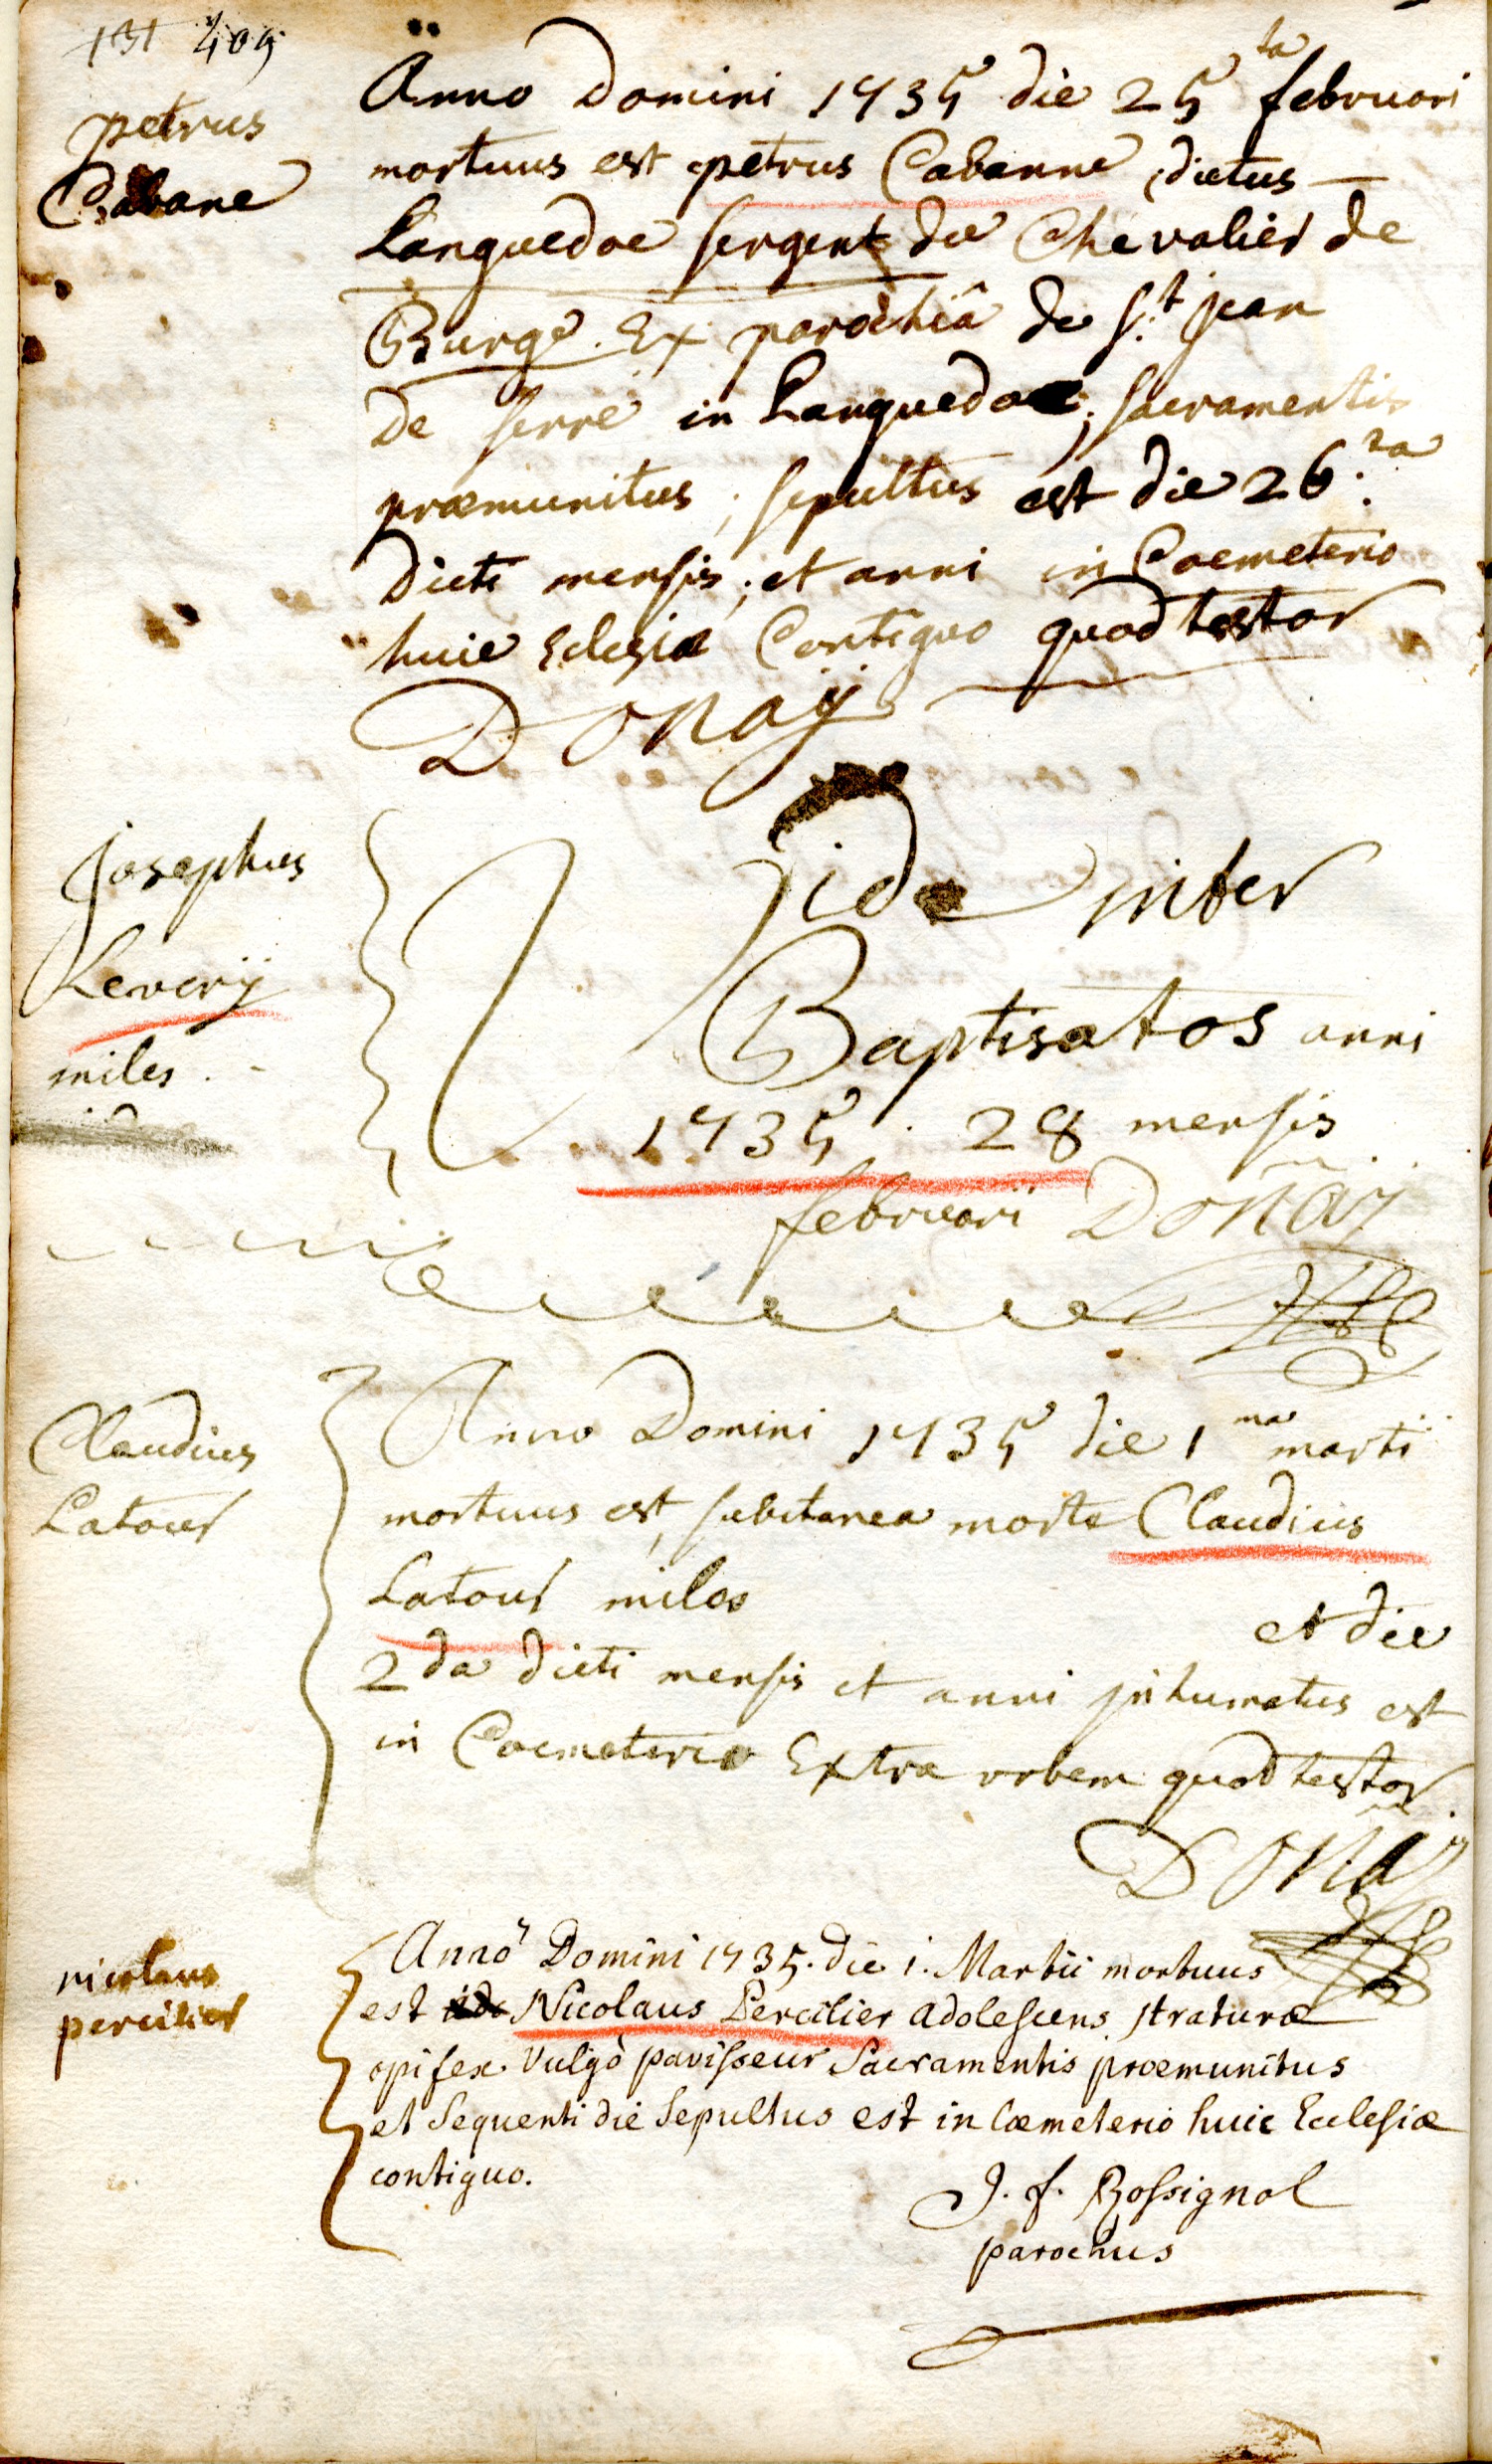 131 409
petrus
Cabane
Anno Domini 1735 die 25ta februari
mortuus est petrus Cabanne dictus
Languedoc sergent du Chevalier de
Burge. Ex parochiâ de St jean
De serre in Languedoc; sacramentis
præmunitus; sepultus est die 26ta
dicti mensis; et anni in Coemeterio
huic Eclesiæ Contiguo quod testor
Donaÿ
Josephus
Leverÿ
miles
Vide inter
Baptisatos anni
1735. 28 mensis
februari Donaÿ
Claudius
Latour
Anno Domini 1735 die 1ma marti
mortuus est, subitanea morte Claudius
Latour miles
et die
2da dicti mensis et anni inhumatus est
in Coemeterio Extra urbem quod testor
Donaÿ
nicolaus
percilier
Anno Domini 1735. die 1. Martii mortuus
est Nicolaus Percilier adolescens straturæ
opifex. Vulgò pavisseur Sacramentis præmunitus
et Sequenti die Sepultus est in Cæmeterio huic Ecclesiæ
contiguo.
J. f. Rossignol
parochus